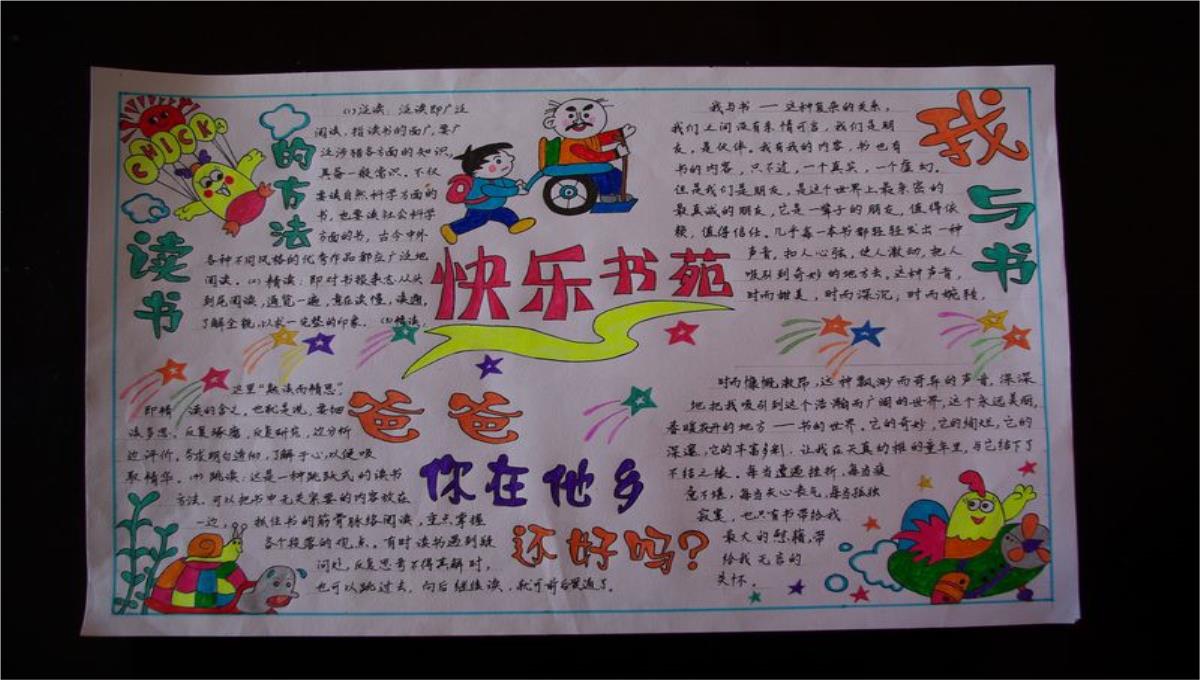 CHICKS
读书
的方法
(1)泛读:泛读即广泛
阅读,指读书的面广,要广
泛涉猎各方面的知识,
具备一般常识。不仅
要读自然科学方面的
书,也要读社会科学
方面的书,古今中外
各种不同风格的优秀作品都应广泛地
阅读。(2)精读:即对书报杂志从头
到尾阅读,通览一遍,意在读懂,读通,
了解全貌,以求一完整的印象。(3)精读:
这里“熟读而精思”,
即精读的含义。也就是说,要细
读多思,反复琢磨,反复研究,边分析
边评价。务求明白透彻,了解于心,以便吸
取精华。(4)跳读:这是一种跳跃式的读书
方法。可以把书中无关紧要的内容放在
一边,抓住书的筋骨脉络阅读,重点掌握
各个段落的观点。有时读书遇到疑
问处,反复思考不得其解时,
也可以跳过去,向后继续读,就可前后贯通了。
快乐书苑
爸爸
你在他乡
还好吗?
我与书
我与书——这种复杂的关系,
我们之间没有亲情可言,我们是朋
友,是伙伴。我有我的内容,书也有
书的内容,只不过,一个真实,一个虚幻。
但是我们是朋友,是这个世界上最亲密的
最真诚的朋友,它是一辈子的朋友,值得依
赖,值得信任。几乎每一本书都轻轻发出一种
声音,扣人心弦,使人激动,把人
吸引到奇妙的地方去。这种声音,
时而甜美,时而深沉;时而婉转,
时而慷慨激昂,这种飘渺而奇异的声音,深深
地把我吸引到这个浩瀚而广阔的世界,这个永远美丽,
春暖花开的地方——书的世界。它的奇妙,它的绚烂,它的
深邃,它的丰富多彩,让我在天真幼稚的童年里,与它结下了
不结之缘。每当遭遇挫折,每当疲
惫不堪,每当灰心丧气,每当孤独
寂寞,也只有书带给我
最大的慰藉,带
给我无言的
关怀。